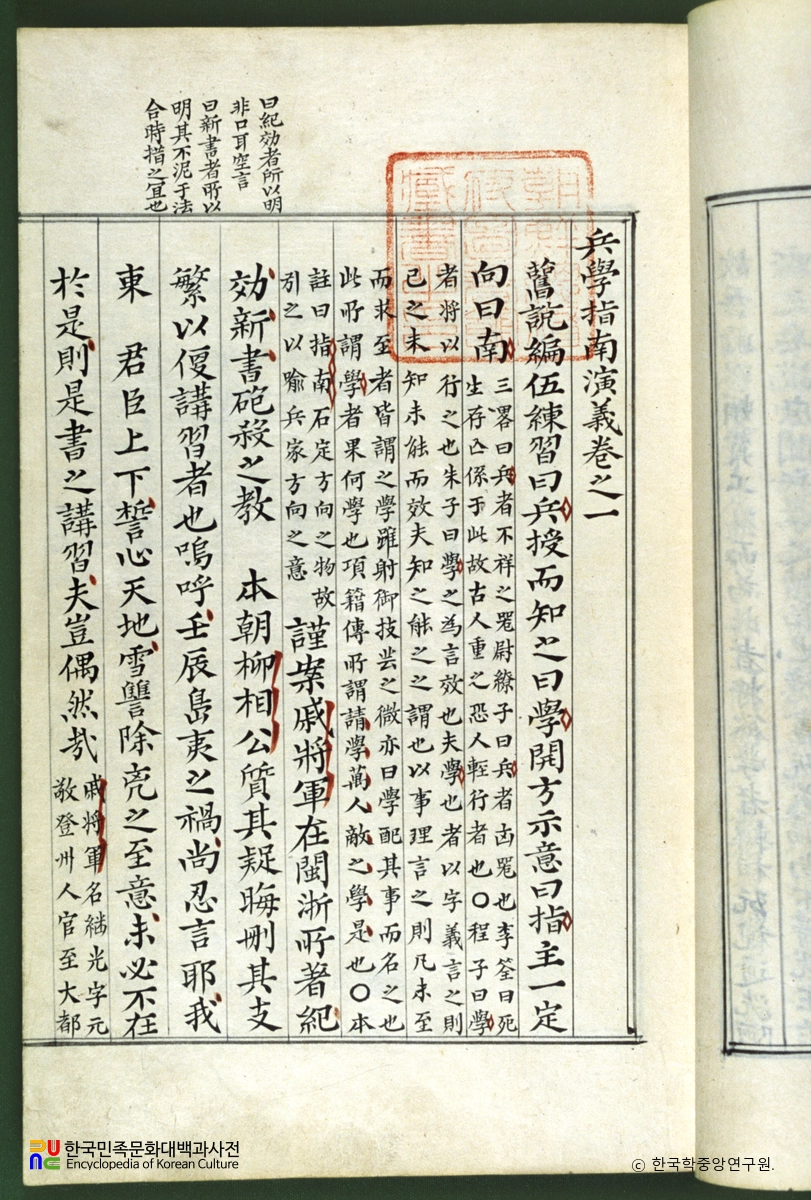 曰紀効者所以明
非口耳空言
曰新書者所以
明其不泥于法
合時措之宜也
兵學指南演義卷之一
舊説編伍練習曰兵授而知之曰學開方示意曰指主一定
向曰南
三畧曰兵者不祥之噐尉繚子曰兵者凶噐也李筌曰死
生存亡係于此故古人重之恐人輕行者也〇程子曰學
者將以行之也朱子曰學之為言效也夫學也者以字義言之則
已之未知未能而效夫知之能之之謂也以事理言之則凡未至
而求至者皆謂之學雖射御技芸之微亦曰學配其事而名之也
此所謂學者果何學也項籍傳所謂請學萬人敵之學是也〇本
註曰指南石定方向之物故
引之以喩兵家方向之意
謹案戚將軍在閩浙所著紀
効新書砲殺之教 本朝柳相公質其疑晦刪其支
繁以便講習者也嗚呼壬辰島夷之禍尚忍言耶我
東 君臣上下誓心天地雪讐除兇之至意未必不在
於是則是書之講習夫豈偶然哉
戚將軍名継光字元
敬登州人官至大都
한국민족문화대백과사전
Encyclopedia of Korean Culture
ⓒ 한국학중앙연구원.